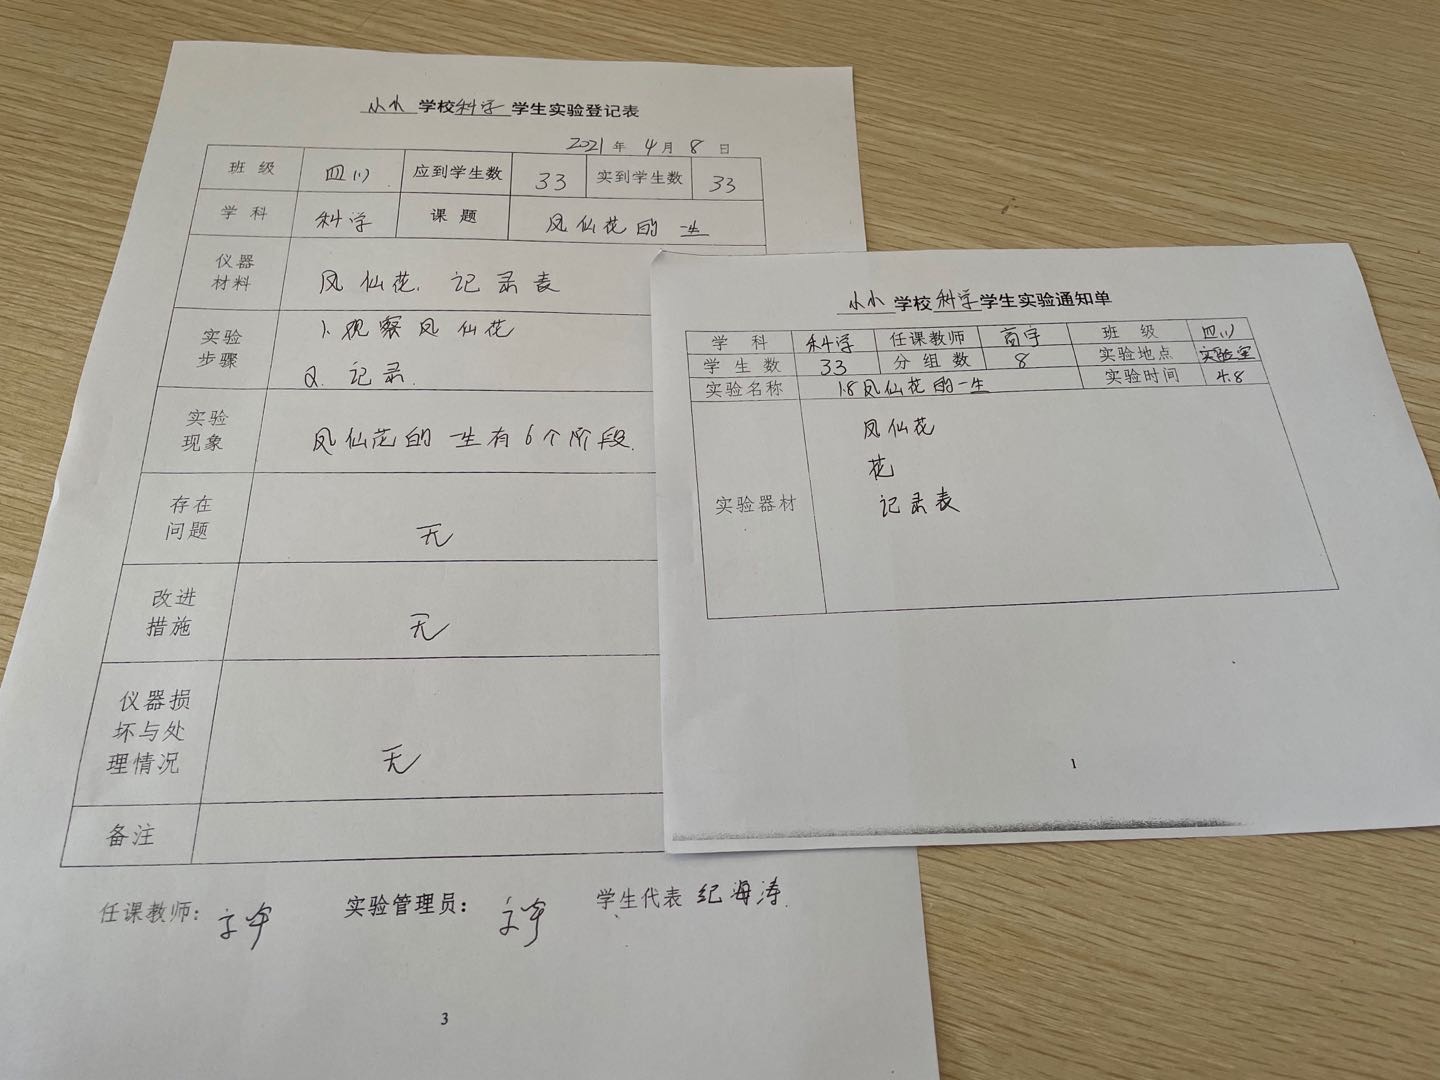 小小 学校 科学 学生实验登记表
2021 年 4 月 8 日
班 级 四(1) 应到学生数 33 实到学生数 33
学 科 科学 课 题 凤仙花的一生
仪器
材料
凤仙花、记录表
实验
步骤
1. 观察凤仙花
2. 记录.
实验
现象
凤仙花的一生有6个阶段.
存在
问题
无
改进
措施
无
仪器损
坏与处
理情况
无
备注
任课教师: 实验管理员: 学生代表 纪海涛
3
小小 学校 科学 学生实验通知单
学 科 科学 任课教师 高宇 班 级 四(1)
学 生 数 33 分 组 数 8 实验地点 实验室
实验名称 1.8凤仙花的一生 实验时间 4.8
实验器材
凤仙花
花
记录表
1